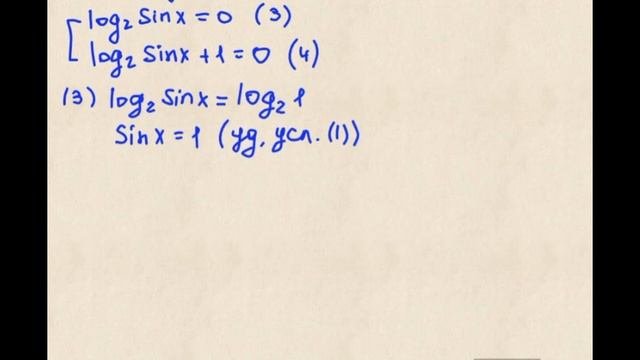 log₂ sin x = 0 (3)
log₂ sin x + 1 = 0 (4)
(3) log₂ sin x = log₂ 1
sin x = 1 (уд. усл. (1))